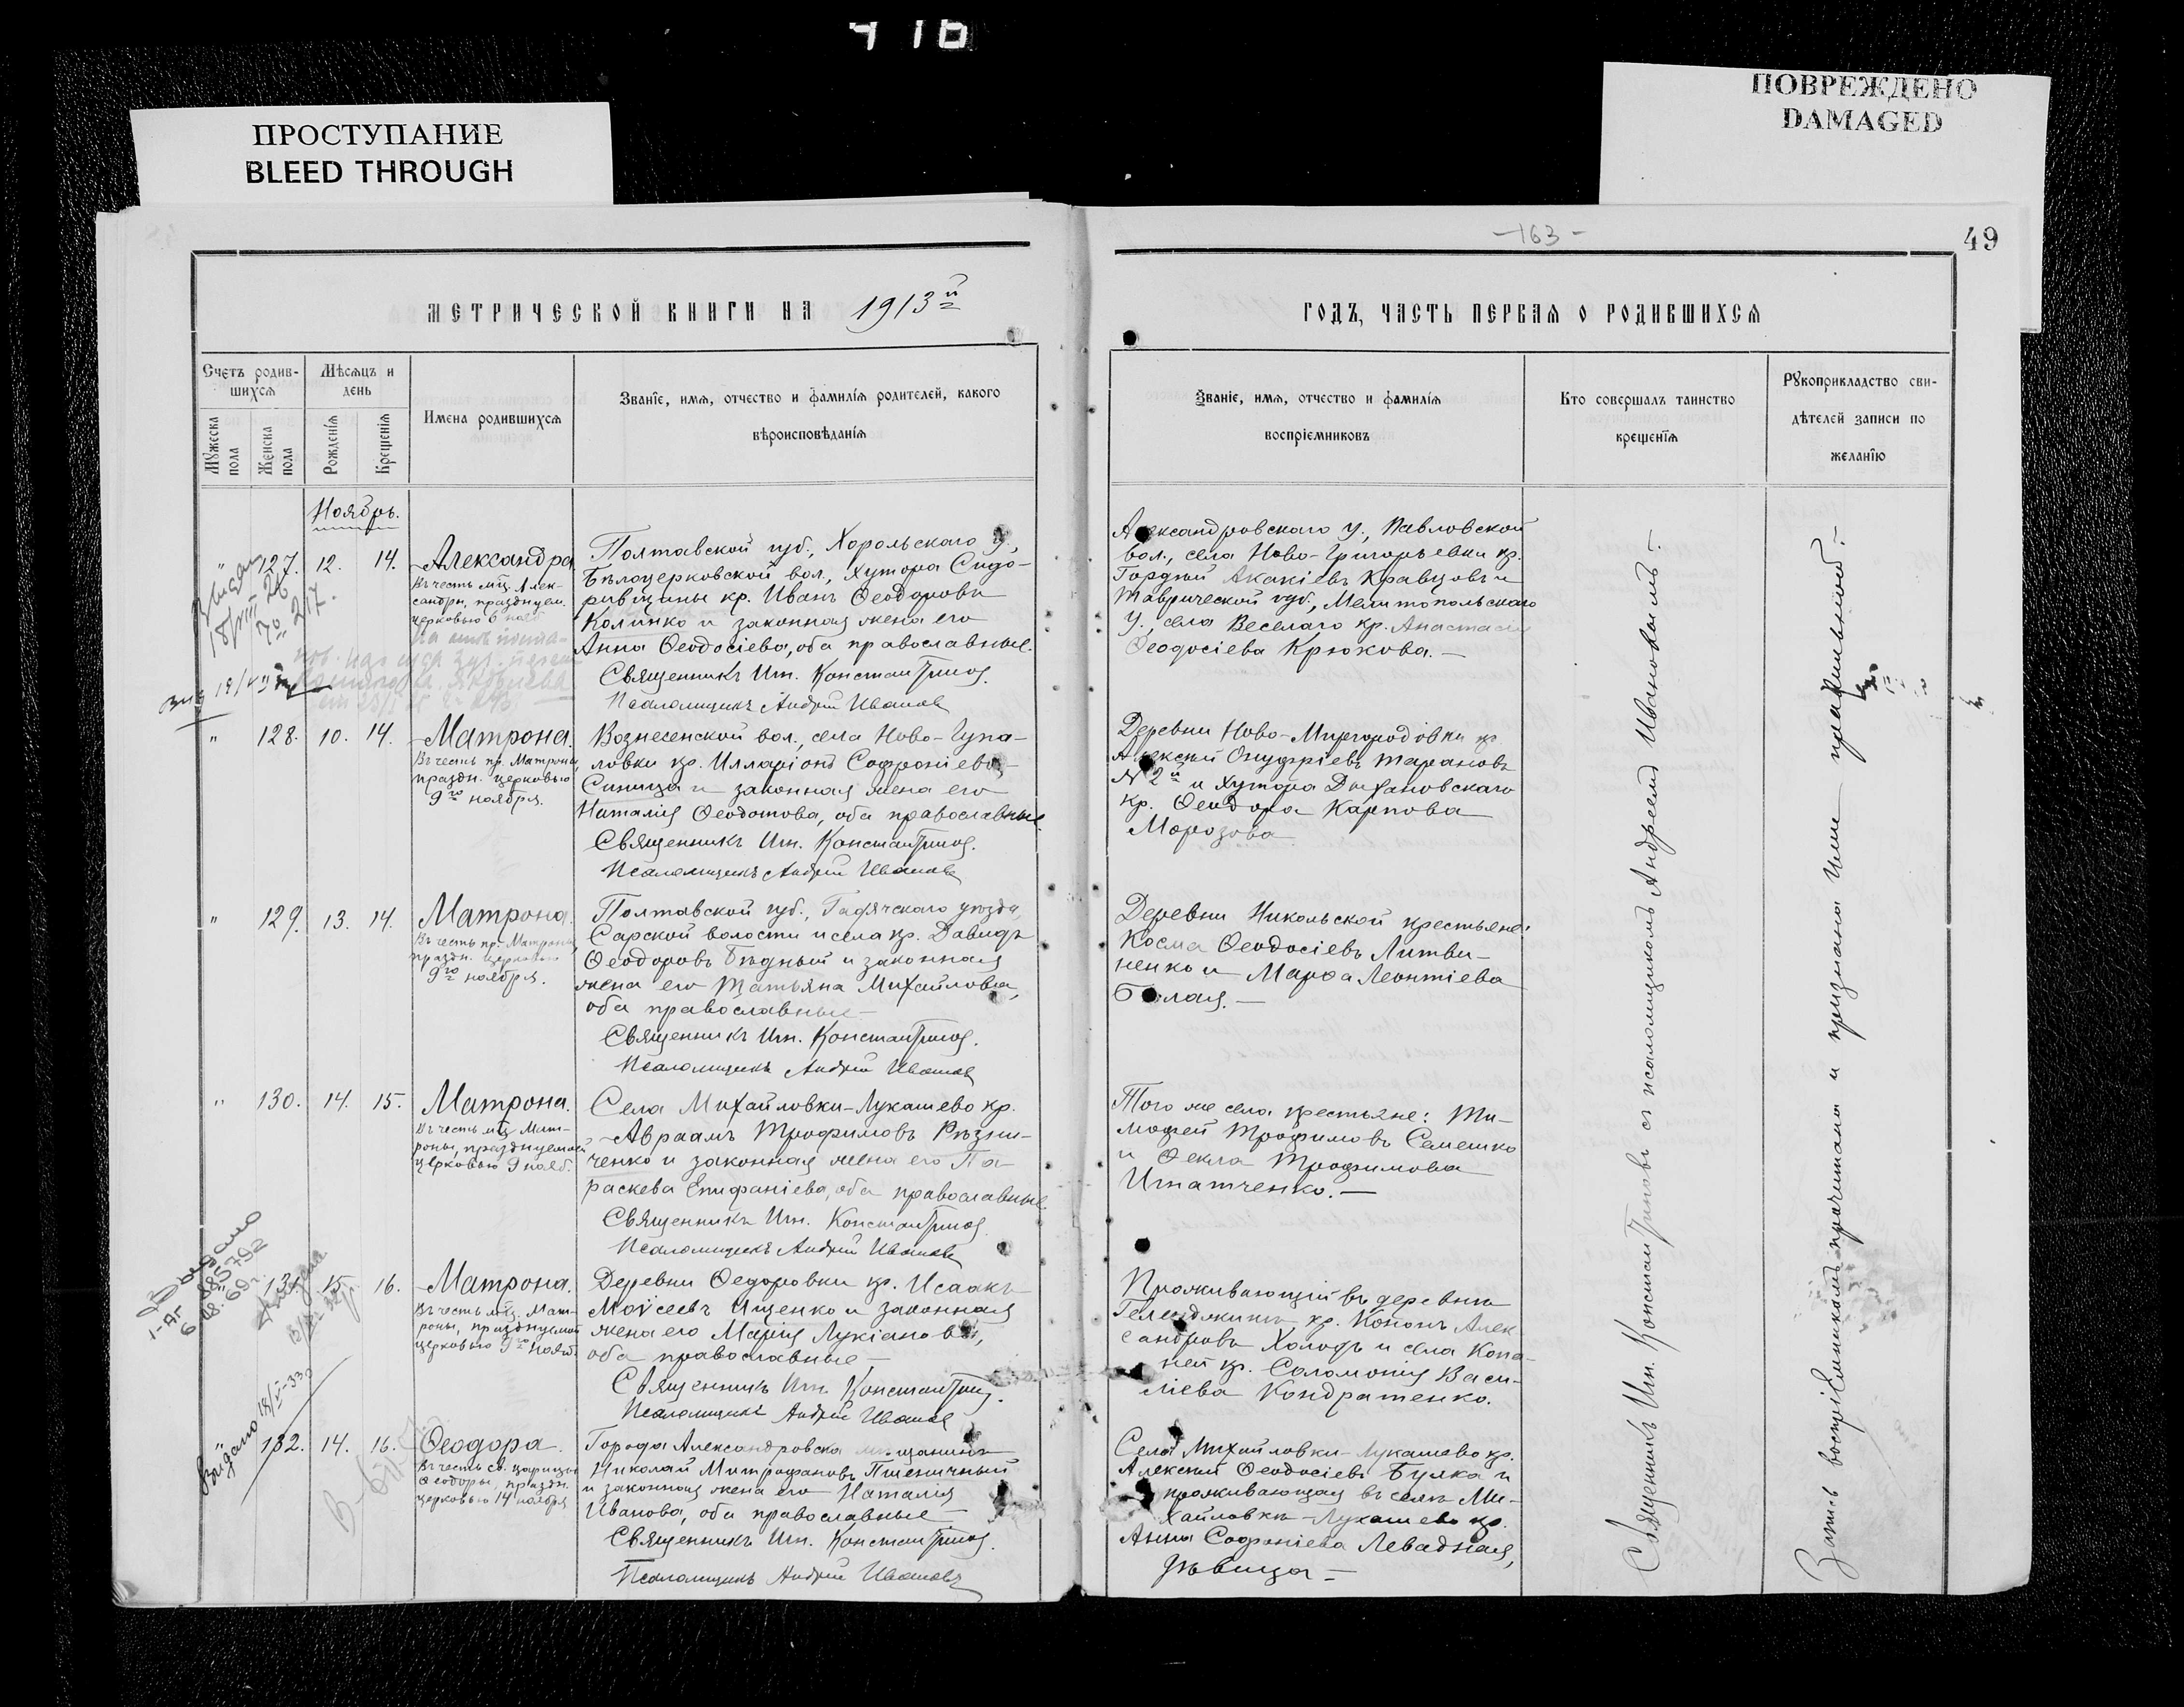 416
ПРОСТУПАНИЕ
BLEED THROUGH
ПОВРЕЖДЕНО
DAMAGED
-163-
49
МЕТРИЧЕСКОЙ КНИГИ НА 1913й
ГОДЪ, ЧАСТЬ ПЕРВАЯ О РОДИВШИХСЯ
Счетъ родив-
шихся
Мужеска пола
Женска пола
Мѣсяцъ и
день
Рожденїя
Крещенїя
Имена родившихся
Званїе, имя, отчество и фамилїя родителей, какого
вѣроисповѣданїя
Званїе, имя, отчество и фамилїя
воспрїемниковъ
Кто совершалъ таинство
крещенїя
Рукоприкладство сви-
дѣтелей записи по
желанїю
Ноябрь.
" 127. 12. 14. Александра
Въ честь мц. Алек-
сандры, празднуем.
церковью 6
Полтавской губ., Хорольскаго у.,
Бѣлоцерковской вол., хутора Сидо-
ривщины кр. Иванъ Ѳеодоровъ
Колинко и законная жена его
Анна Ѳеодосіева, оба православные.
Священникъ Иг. Константинов.
Псаломщикъ Андрей Иванов
Александровскаго у., Павловской
вол., села Ново-Григорьевки кр.
Гордѣй Акакіевъ Кравцовъ и
Таврической губ., Мелитопольскаго
у., села Веселаго кр. Анастасія
Ѳеодосіева Крюкова.—
" 128. 10. 14. Матрона.
Въ честь пр. Матроны,
праздн. церковью
9го ноября.
Вознесенской вол., села Ново-Гупа-
ловки кр. Илларіонъ Софроніевъ
Синица и законная жена его
Наталія Ѳеодотова, оба православные.
Священникъ Иг. Константинов.
Псаломщикъ Андрей Иванов
Деревни Ново-Миргородовки кр.
Алексѣй Онуфріевъ Тарановъ
№ 2й и хутора
кр. Ѳеодора Карпова
Морозова
" 129. 13. 14. Матрона.
Въ честь пр. Матроны,
праздн. церковью
9го ноября.
Полтавской губ., Гадячскаго уѣзда,
Сарской волости и села кр. Давидъ
Ѳеодоровъ Бѣдный и законная
жена его Татьяна Михайловна,
оба православные—
Священникъ Иг. Константинов.
Псаломщикъ Андрей Иванов
Деревни Никольской крестьяне:
Косма Ѳеодосіевъ Литви-
ненко и Марѳа Леонтіева
Бѣлая.—
" 130. 14. 15. Матрона.
Въ честь мц. Мат-
роны, празднуемой
церковью 9 нояб.
Села Михайловки-Лукашево кр.
Авраамъ Трофимовъ Рѣзни-
ченко и законная жена его Па-
раскева Епифаніева, оба православные.
Священникъ Иг. Константинов.
Псаломщикъ Андрей Иванов
Того же села крестьяне: Ти-
мофей Трофимовъ Семешко
и Ѳекла Трофимова
Игнатченко.—
131. 15. 16. Матрона.
Въ честь мц. Мат-
роны, празднуемой
церковью 9го нояб.
Деревни Ѳедоровки кр. Исаакъ
Моѵсеевъ Ищенко и законная
жена его Марія Лукіанова,
оба православные—
Священникъ Иг. Константинов.
Псаломщикъ Андрей Иванов
Проживающій въ деревнѣ
кр. Кононъ Алек-
сандровъ Холодъ и села Копа-
ней кр. Соломонія Васи-
ліева Кондратенко.
" 132. 14. 16. Ѳеодора.
Въ честь св. царицы
Ѳеодоры, праздн.
церковью 14 ноября
Города Александровска мѣщанинъ
Николай Митрофановъ Пшеничный
и законная жена его Наталія
Иванова, оба православные—
Священникъ Иг. Константинов.
Псаломщикъ Андрей Ивановъ
Села Михайловки-Лукашево кр.
Алексѣй Ѳеодосіевъ Булка и
проживающая въ селѣ Ми-
хайловкѣ-Лукашево кр.
Анна Софроніева Левадная,
дѣвица—
Священникъ Иг. Константиновъ съ псаломщикомъ Андреемъ Ивановымъ.—
Запись воспріемникомъ прочитана и признана ими правильной.—
Выдано